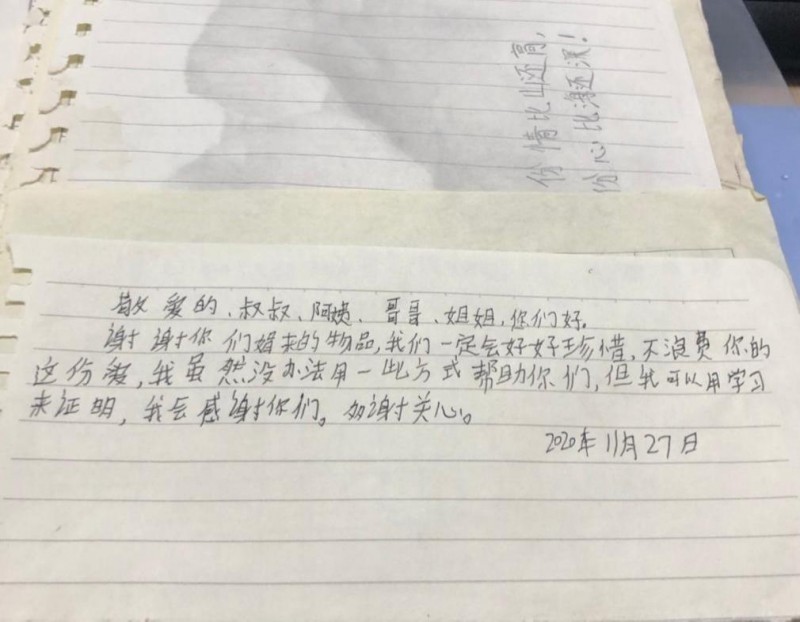 份情比山还高，
份心比海还深！
敬爱的、叔叔、阿姨、哥哥、姐姐，你们好。
谢谢你们捐来的物品，我们一定会好好珍惜，不浪费你的
这份爱，我虽然没办法用一些方式帮助你们，但我可以用学习
来证明，我会感谢你们。多谢关心。
2020年11月27日